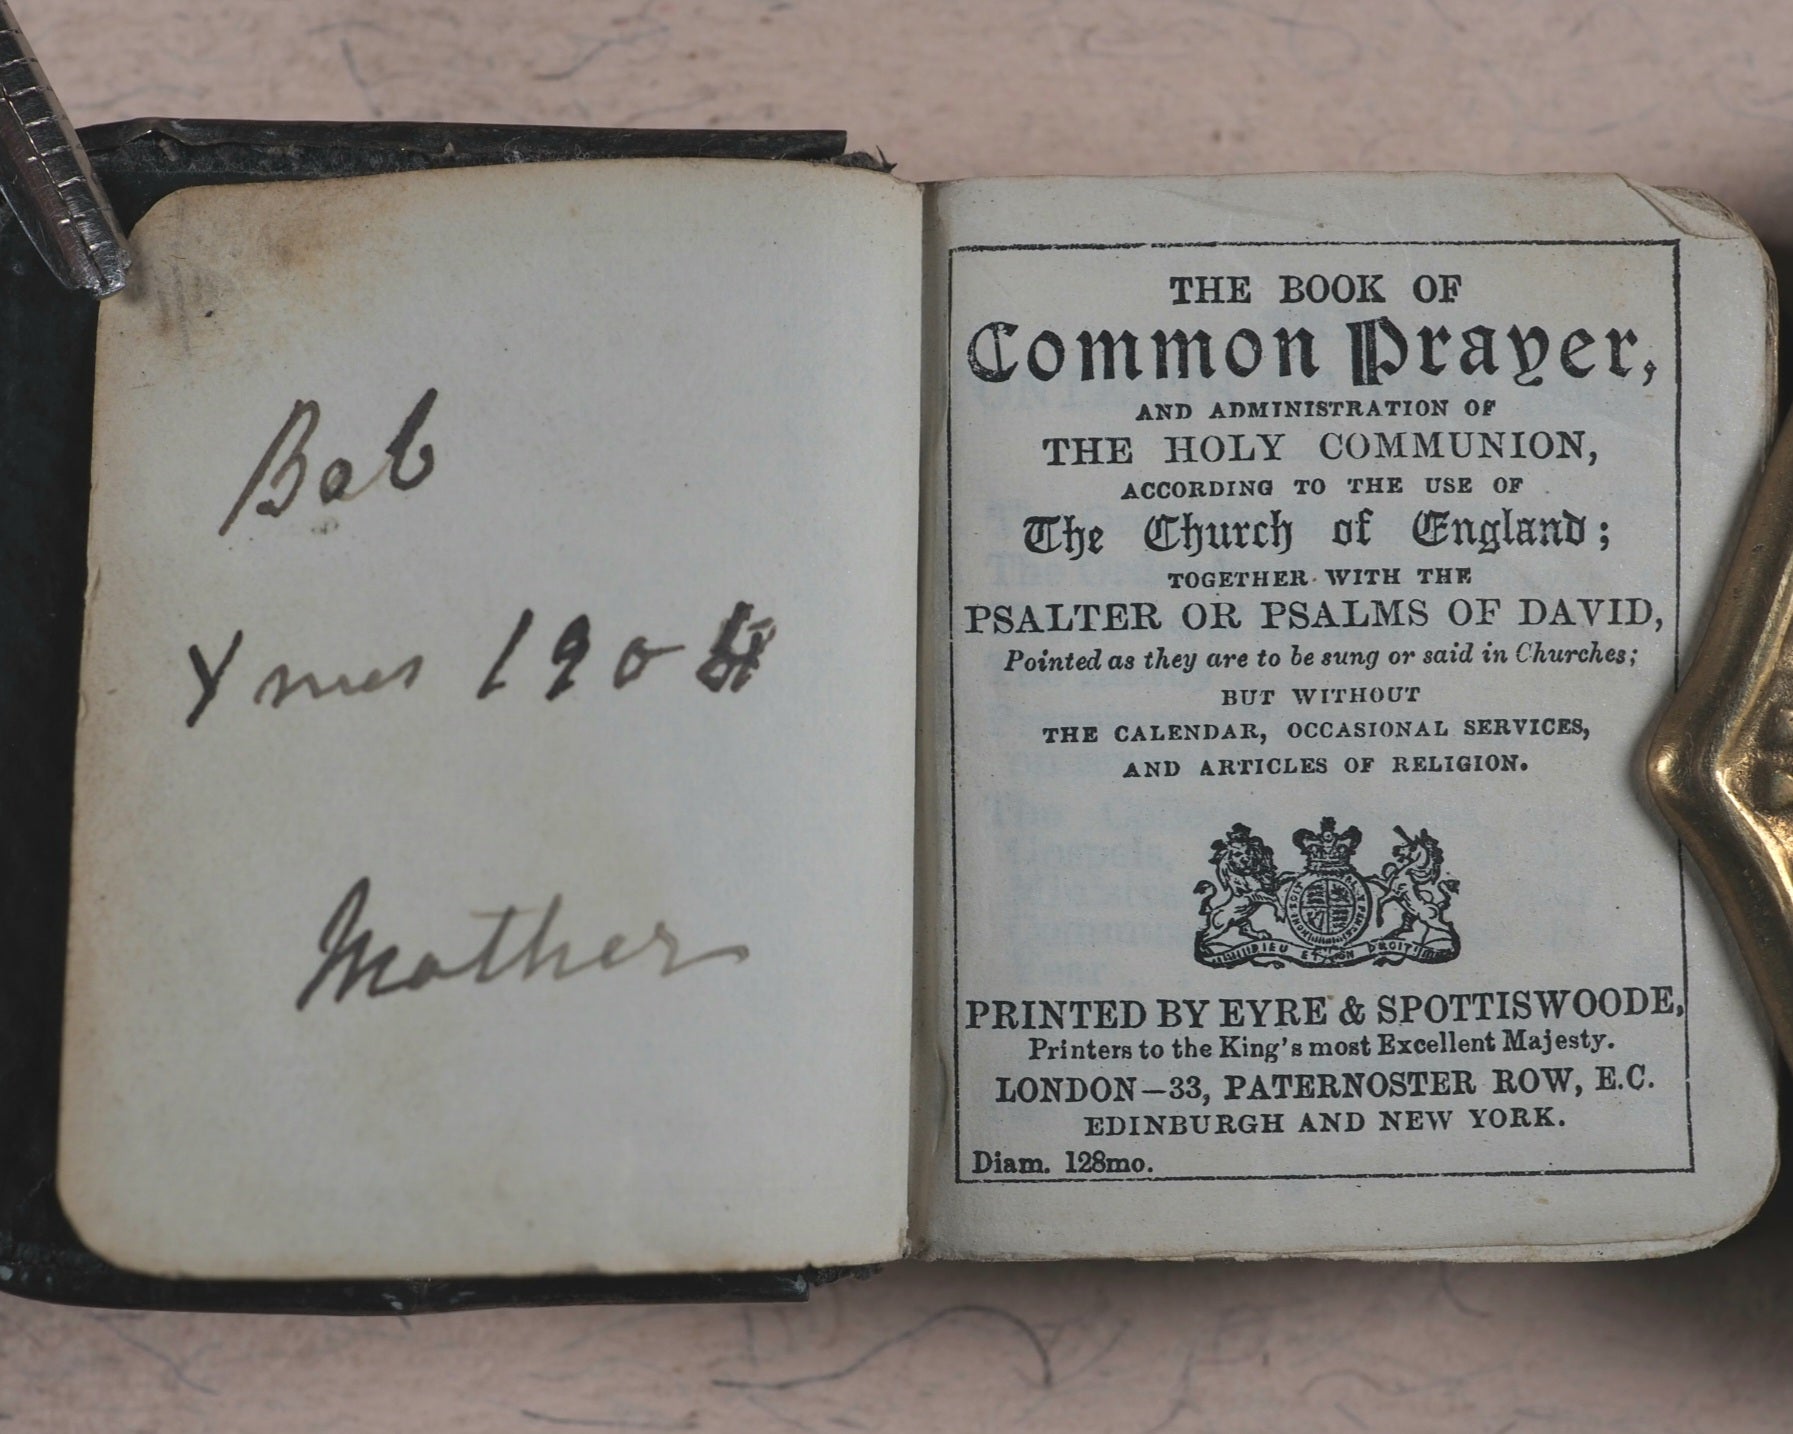 Bob
Xmas 1904
Mother
THE BOOK OF
Common Prayer,
AND ADMINISTRATION OF
THE HOLY COMMUNION,
ACCORDING TO THE USE OF
The Church of England;
TOGETHER WITH THE
PSALTER OR PSALMS OF DAVID,
Pointed as they are to be sung or said in Churches;
BUT WITHOUT
THE CALENDAR, OCCASIONAL SERVICES,
AND ARTICLES OF RELIGION.
DIEU ET MON DROIT
PRINTED BY EYRE & SPOTTISWOODE,
Printers to the King's most Excellent Majesty.
LONDON—33, PATERNOSTER ROW, E.C.
EDINBURGH AND NEW YORK.
Diam. 128mo.